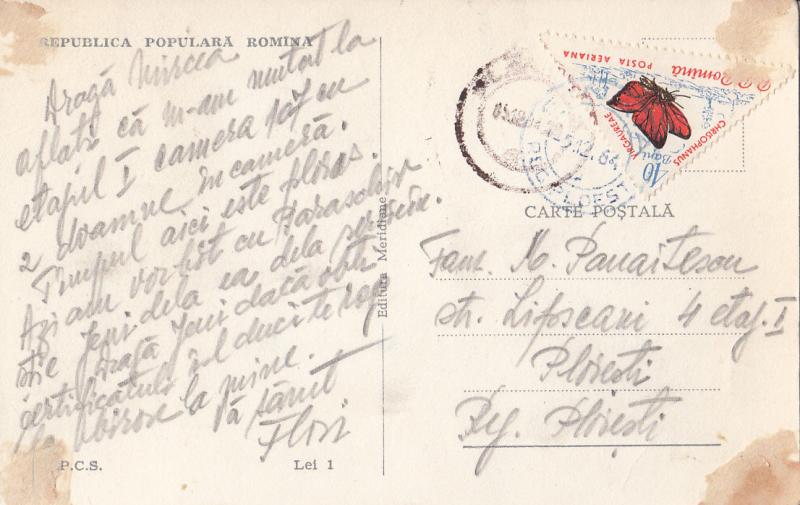 REPUBLICA POPULARĂ ROMÎNĂ
Dragă Mircea
aflați că m-am mutat la
etajul I camera 107 cu
2 doamne în cameră.
Timpul aici este ploios.
Azi am vorbit cu
știe Jeni dela ea dela serviciu.
Dragă Jeni dacă
certificatului îl duci te rog
la mine.
Vă sărut
Flori
P.C.S.
Lei 1
Editura Meridiane
POSTA AERIANA
R.P. Romînă
CHRISOPHANUS
VIRGAUREAE
10
Bani
CARTE POȘTALĂ
Fam. M. Panaitescu
str. Lipscani 4 etaj. I
Ploiești
Reg. Ploiești